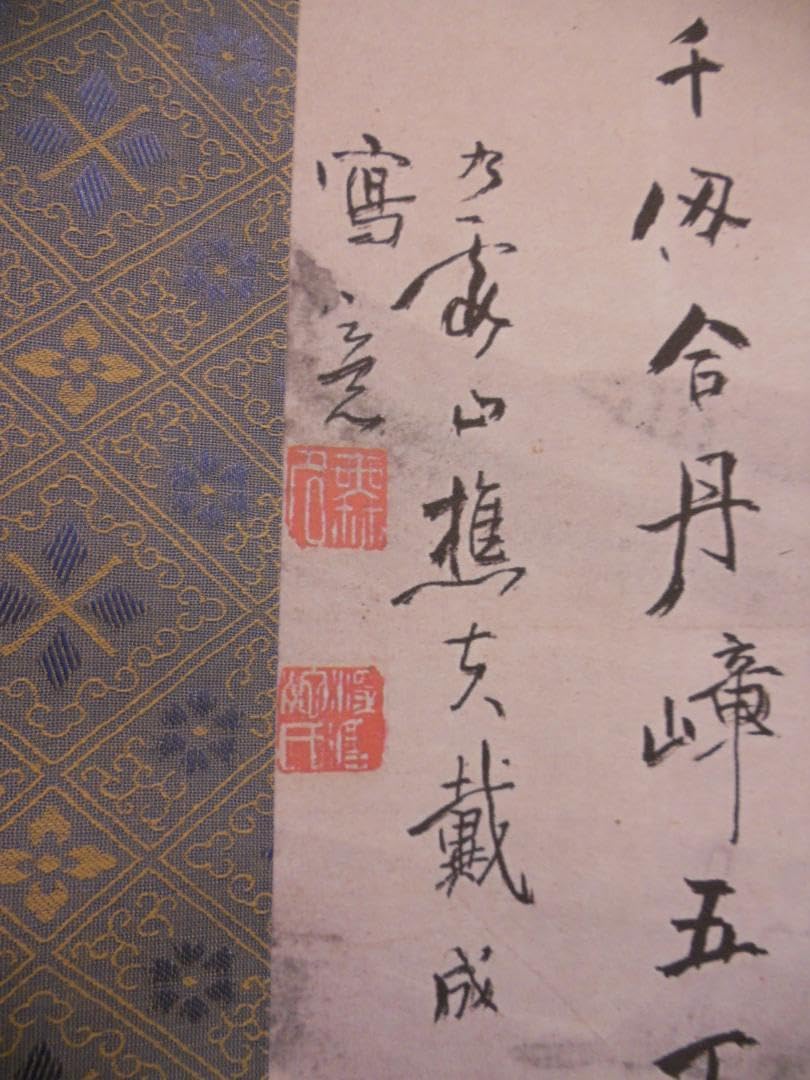 千仞合丹嶂五
九霞山樵夫戴成
寫意